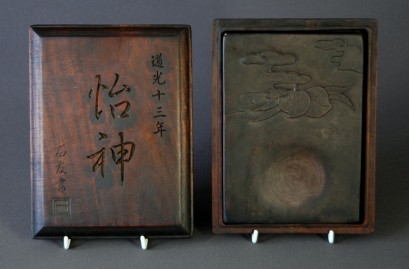 道光十三年
怡神
石友